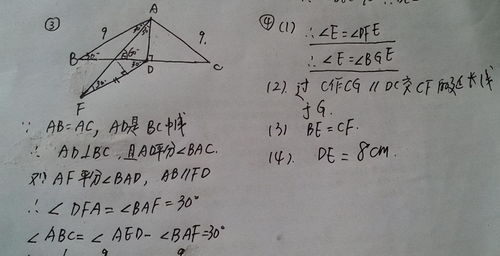 ③
A
9
9.
B
30°
E
60°
30°
D
C
30°
F
∵ AB=AC, AD是BC中线
∴ AD⊥BC, 且AD平分∠BAC.
AF平分∠BAD, AB∥FD
∴∠DFA=∠BAF=30°
∠ABC=∠AED-∠BAF=30°
④(1) ∴∠E=∠DFE
∴∠E=∠BGE
(2). 过C作CG∥DC交CF的延长线
于G.
(3) BE=CF.
(4). DE=8cm.